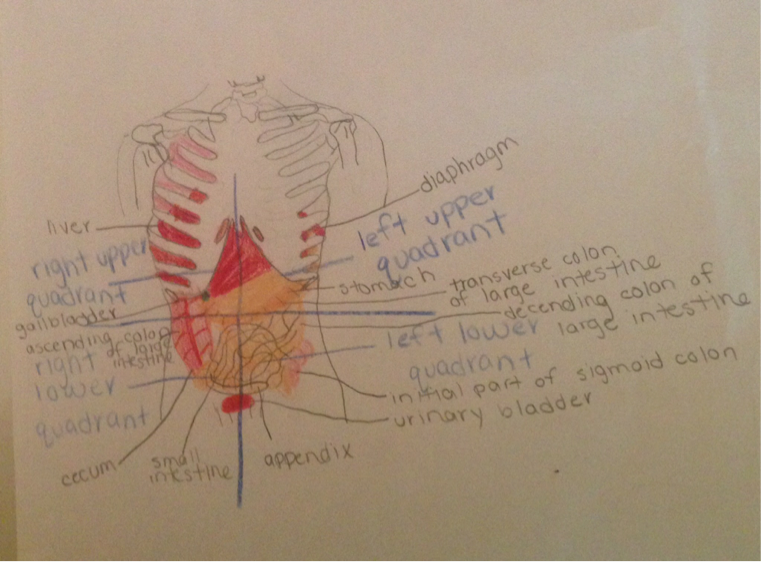 diaphragm
liver
left upper
quadrant
right upper
quadrant
stomach
transverse colon
of large intestine
decending colon of
large intestine
gallbladder
ascending colon
of large
intestine
right
lower
quadrant
left lower
quadrant
initial part of sigmoid colon
urinary bladder
cecum
small
intestine
appendix